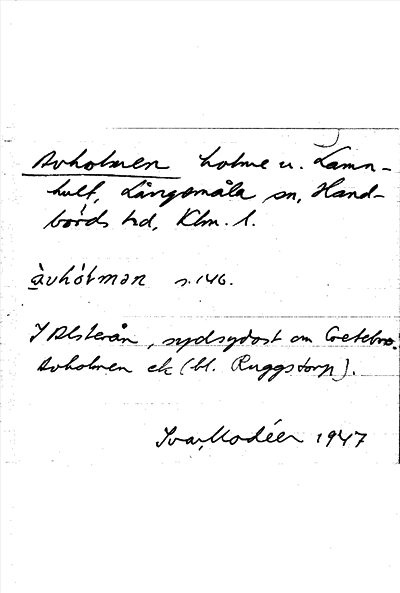 Avholmen holme u. Lamn-
hult, Långemåla sn, Hand-
börds hd, Klm. l.
àvhól̀mən s. 146.
I Alsterån, sydsydost om Gretebro.
Avholmen ek (bl. Ruggstorp).
Ivar Modéer 1947